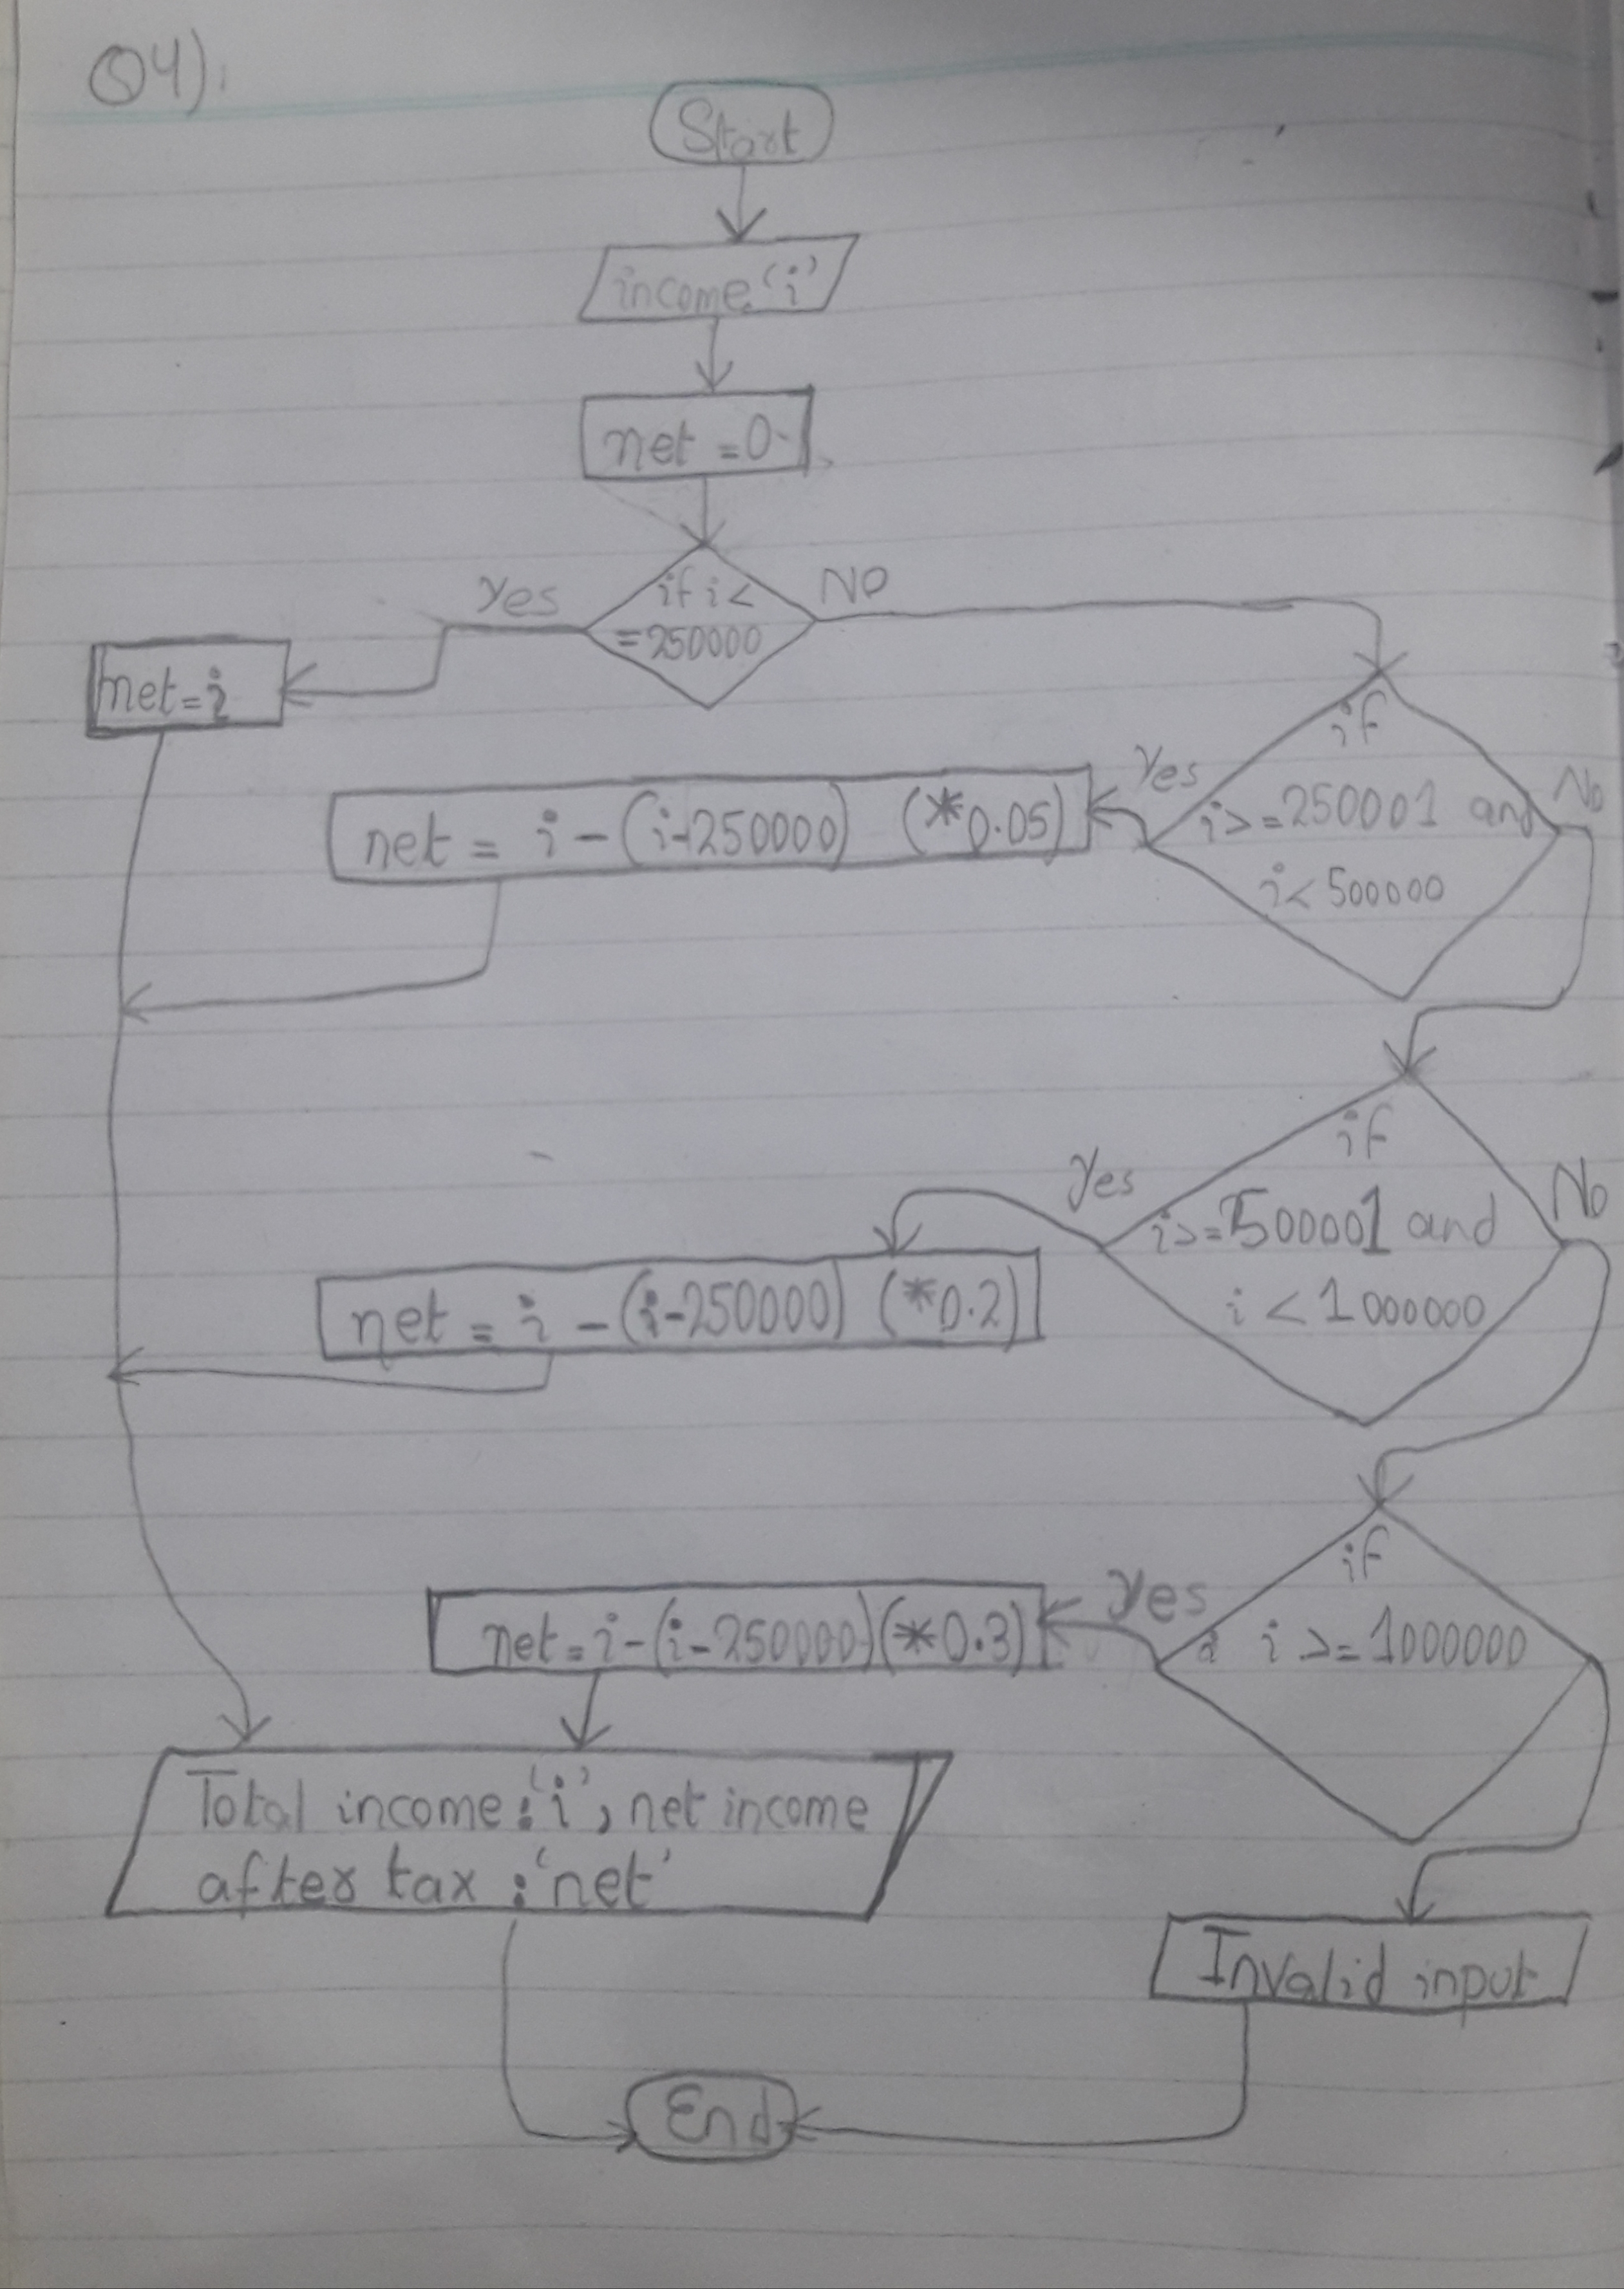 Q4).
Start
income 'i'
net = 0
Yes
if i <
= 250000
NO
net = i
if
i >= 250001 and
i < 500000
Yes
No
net = i - (i-250000) (*0.05)
if
i >= 500001 and
i < 1000000
Yes
No
net = i - (i-250000) (*0.2)
if
i >= 1000000
Yes
net = i - (i - 250000) (*0.3)
Total income : 'i', net income
after tax : 'net'
Invalid input
End